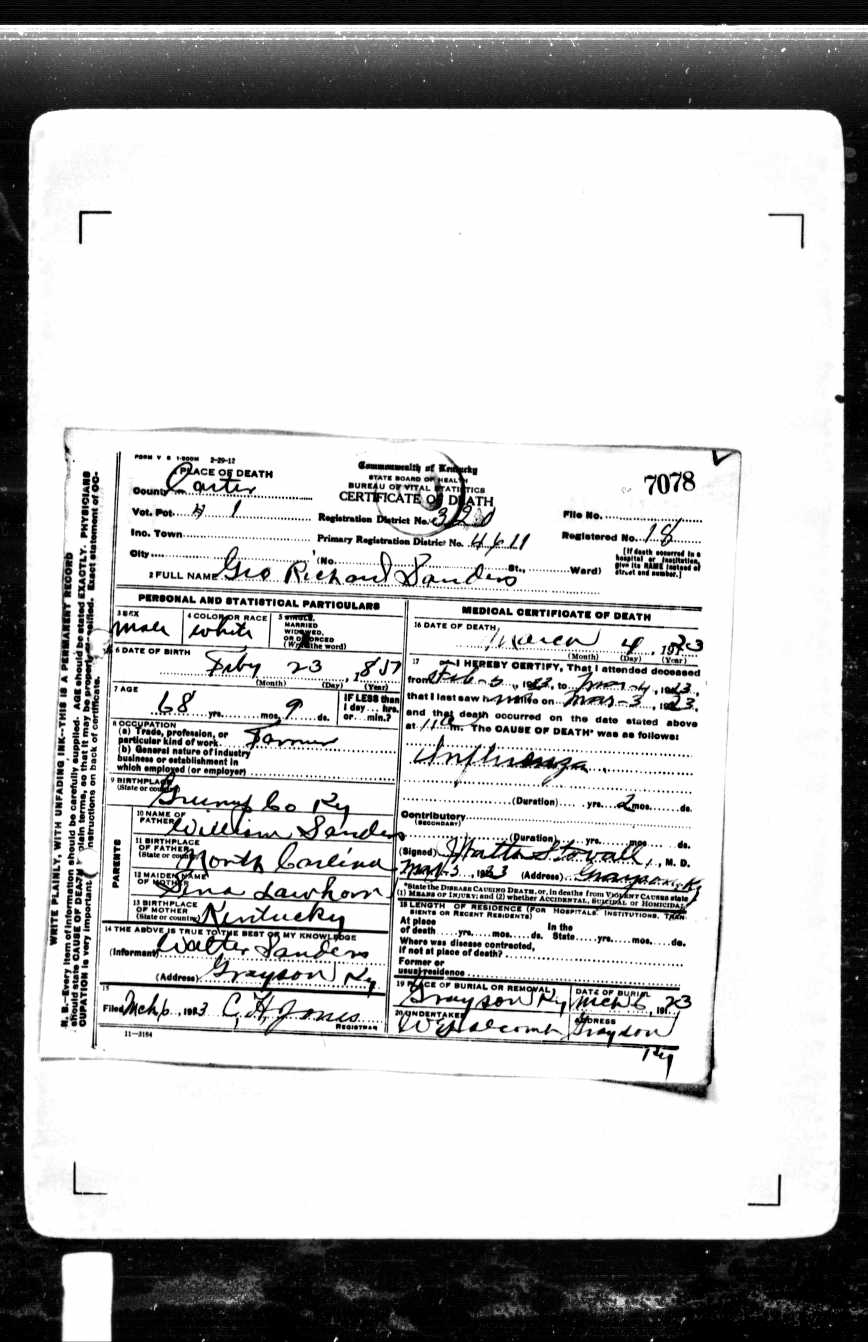 FORM V S 1-500M 2-29-12
PLACE OF DEATH
County Carter
Vot. Pct. # 1
Inc. Town
City
Commonwealth of Kentucky
STATE BOARD OF HEALTH
BUREAU OF VITAL STATISTICS
CERTIFICATE OF DEATH
Registration District No. 320
Primary Registration District No. 4611
(No. St., Ward)
7078
File No.
Registered No. 18
[If death occurred in a
hospital or institution,
give its NAME instead of
street and number.]
2 FULL NAME Geo Richard Sanders
PERSONAL AND STATISTICAL PARTICULARS
3 SEX
Male
4 COLOR OR RACE
White
5 SINGLE,
MARRIED
WIDOWED,
OR DIVORCED
(Write the word)
6 DATE OF BIRTH
Feby 23, 185
(Month) (Day) (Year)
7 AGE
68 yrs. mos. 9 ds.
IF LESS than
1 day... hrs.
or... min.?
8 OCCUPATION
(a) Trade, profession, or
particular kind of work Farmer
(b) General nature of industry
business or establishment in
which employed (or employer)
9 BIRTHPLACE
(State or country)
Co Ky
PARENTS
10 NAME OF
FATHER William Sanders
11 BIRTHPLACE
OF FATHER
(State or country) North Carlina
12 MAIDEN NAME
OF MOTHER Lawhorn
13 BIRTHPLACE
OF MOTHER
(State or country) Kentucky
14 THE ABOVE IS TRUE TO THE BEST OF MY KNOWLEDGE
(Informant) Walter Sanders
(Address) Grayson Ky
15
Filed Mch 6, 1923 C. H. Jones
REGISTRAR
11-3184
MEDICAL CERTIFICATE OF DEATH
16 DATE OF DEATH
March 4, 1923
(Month) (Day) (Year)
17 I HEREBY CERTIFY, That I attended deceased
from Feb-6, 1923, to Mar-4, 1923,
that I last saw him alive on Mar-3, 1923,
and that death occurred on the date stated above
at m. The CAUSE OF DEATH* was as follows:
Influenza
(Duration) yrs. 2 mos. ds.
Contributory
(SECONDARY)
(Duration) yrs. mos. ds.
(Signed) Watts Stovall, M. D.
Mar-5, 1923 (Address) Grayson, Ky
*State the DISEASE CAUSING DEATH, or, in deaths from VIOLENT CAUSES state
(1) MEANS OF INJURY; and (2) whether ACCIDENTAL, SUICIDAL or HOMICIDAL.
18 LENGTH OF RESIDENCE (FOR HOSPITALS, INSTITUTIONS, TRAN-
SIENTS OR RECENT RESIDENTS)
At place In the
of death yrs. mos. ds. State yrs. mos. ds.
Where was disease contracted,
if not at place of death?
Former or
usual residence
19 PLACE OF BURIAL OR REMOVAL
Grayson Ky
DATE OF BURIAL
Mch 6, 1923
20 UNDERTAKER
ADDRESS
Grayson
Ky
N. B.—Every item of information should be carefully supplied. AGE should be stated EXACTLY. PHYSICIANS
should state CAUSE OF DEATH in plain terms, so that it may be properly classified. Exact statement of OC-
CUPATION is very important. instructions on back of certificate.
WRITE PLAINLY, WITH UNFADING INK—THIS IS A PERMANENT RECORD